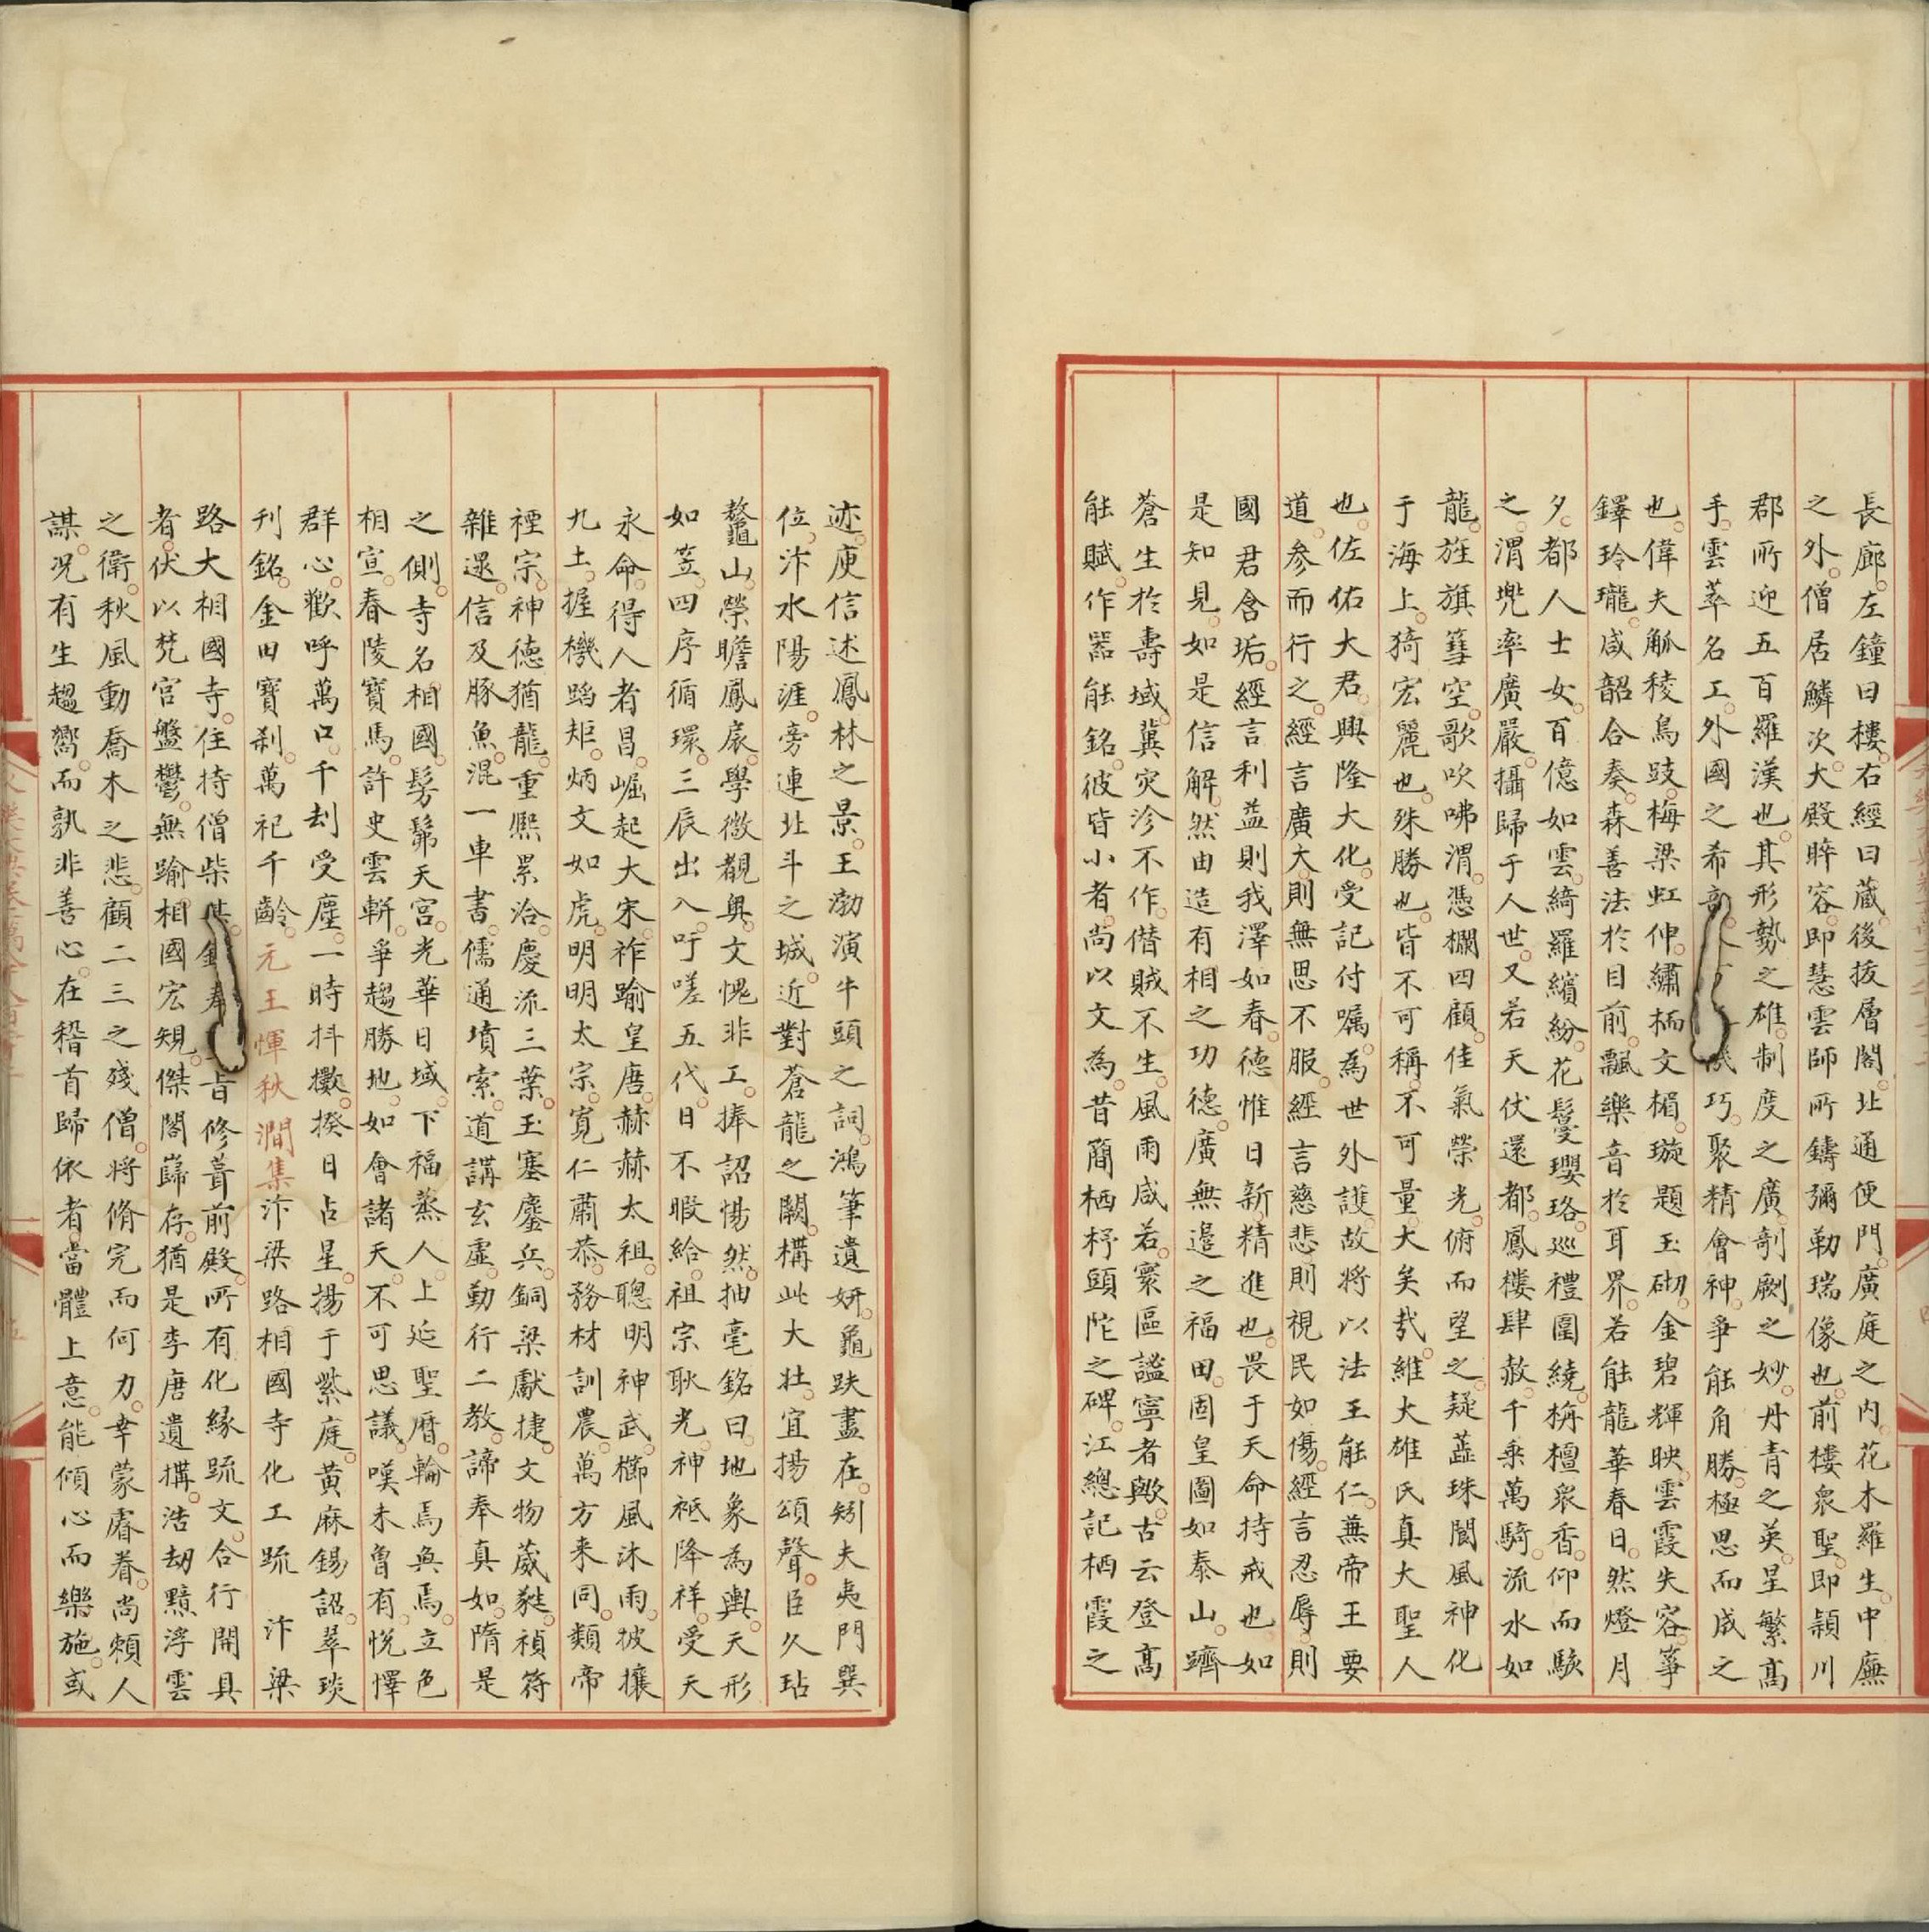 長廊左鐘曰樓右經曰藏後拔層閣北通便門廣庭之內花木羅生中廡
之外僧居鱗次大殿睟容即慧雲師所鑄彌勒瑞像也前樓眾聖即潁川
郡所迎五百羅漢也其形勢之雄制度之廣剞劂之妙丹青之英星繁高
手雲萃名工外國之希巧聚精會神爭能角勝極思而成之
也偉夫觚稜鳥跂梅梁虹伸繡栭文楣璇題玉砌金碧輝映雲霞失容箏
鐸玲瓏咸韶合奏森善法於目前飄樂音於耳界若能龍華春日然燈月
夕都人士女百億如雲綺羅繽紛花鬘瓔珞巡禮圍繞栴檀眾香仰而駭
之謂兜率廣嚴攝歸于人世又若天伏還都鳳樓肆赦千乘萬騎流水如
龍旌旗篲空歌吹咈渭憑欄四顧佳氣榮光俯而望之疑蕋珠閬風神化
于海上猗宏麗也殊勝也皆不可稱不可量大矣哉維大雄氏真大聖人
也佐佑大君興隆大化受記付囑為世外護故將以法王能仁兼帝王要
道參而行之經言廣大則無思不服經言慈悲則視民如傷經言忍辱則
國君含垢經言利益則我澤如春德惟日新精進也畏于天命持戒也如
是知見如是信解然由造有相之功德廣無邊之福田固皇圖如泰山躋
蒼生於壽域冀灾沴不作僭賊不生風雨咸若寰區謐寧者歟古云登高
能賦作器能銘彼皆小者尚以文為昔簡栖抒頭陀之碑江總記栖霞之
迹庾信述鳳林之景王渤演牛頭之詞鴻筆遺妍龜趺盡在矧夫夷門巽
位汴水陽涯旁連北斗之城近對蒼龍之闕構此大壯宜揚頌聲臣久玷
鼇山榮瞻鳳扆學微覩奧文愧非工捧詔惕然抽毫銘曰地象為輿天形
如笠四序循環三辰出入吁嗟五代日不暇給祖宗耿光神祇降祥受天
永命得人者昌崛起大宋祚踰皇唐赫赫太祖聰明神武櫛風沐雨披攘
九土握機蹈矩炳文如虎明明太宗寬仁肅恭務材訓農萬方来同類帝
禋宗神德猶龍重熙累洽慶流三葉玉塞鏖兵銅梁獻捷文物葳蕤禎符
雜遝信及豚魚混一車書儒通墳索道講玄虛動行二教諦奉真如隋是
之側寺名相國髣髴天宮光華日域下福蒸人上延聖曆輪焉奐焉立色
相宣春陵寶馬許史雲軿爭趨勝地如會諸天不可思議嘆未曾有悅懌
群心歡呼萬口千刦受塵一時抖擻揆日占星揚于紫庭黃麻錫詔翠琰
刊銘金田寶剎萬祀千齡元王惲秋澗集汴梁路相國寺化工䟽 汴梁
路大相國寺住持僧柴旨修葺前殿所有化緣䟽文合行開具
者伏以梵宮盤鬱無踰相國宏規傑閣巋存猶是李唐遺搆浩刼黯浮雲
之衛秋風動喬木之悲顧二三之殘僧將脩完而何力幸蒙睿眷尚賴人
謀況有生趨嚮而孰非善心在稽首歸依者當體上意能傾心而樂施或